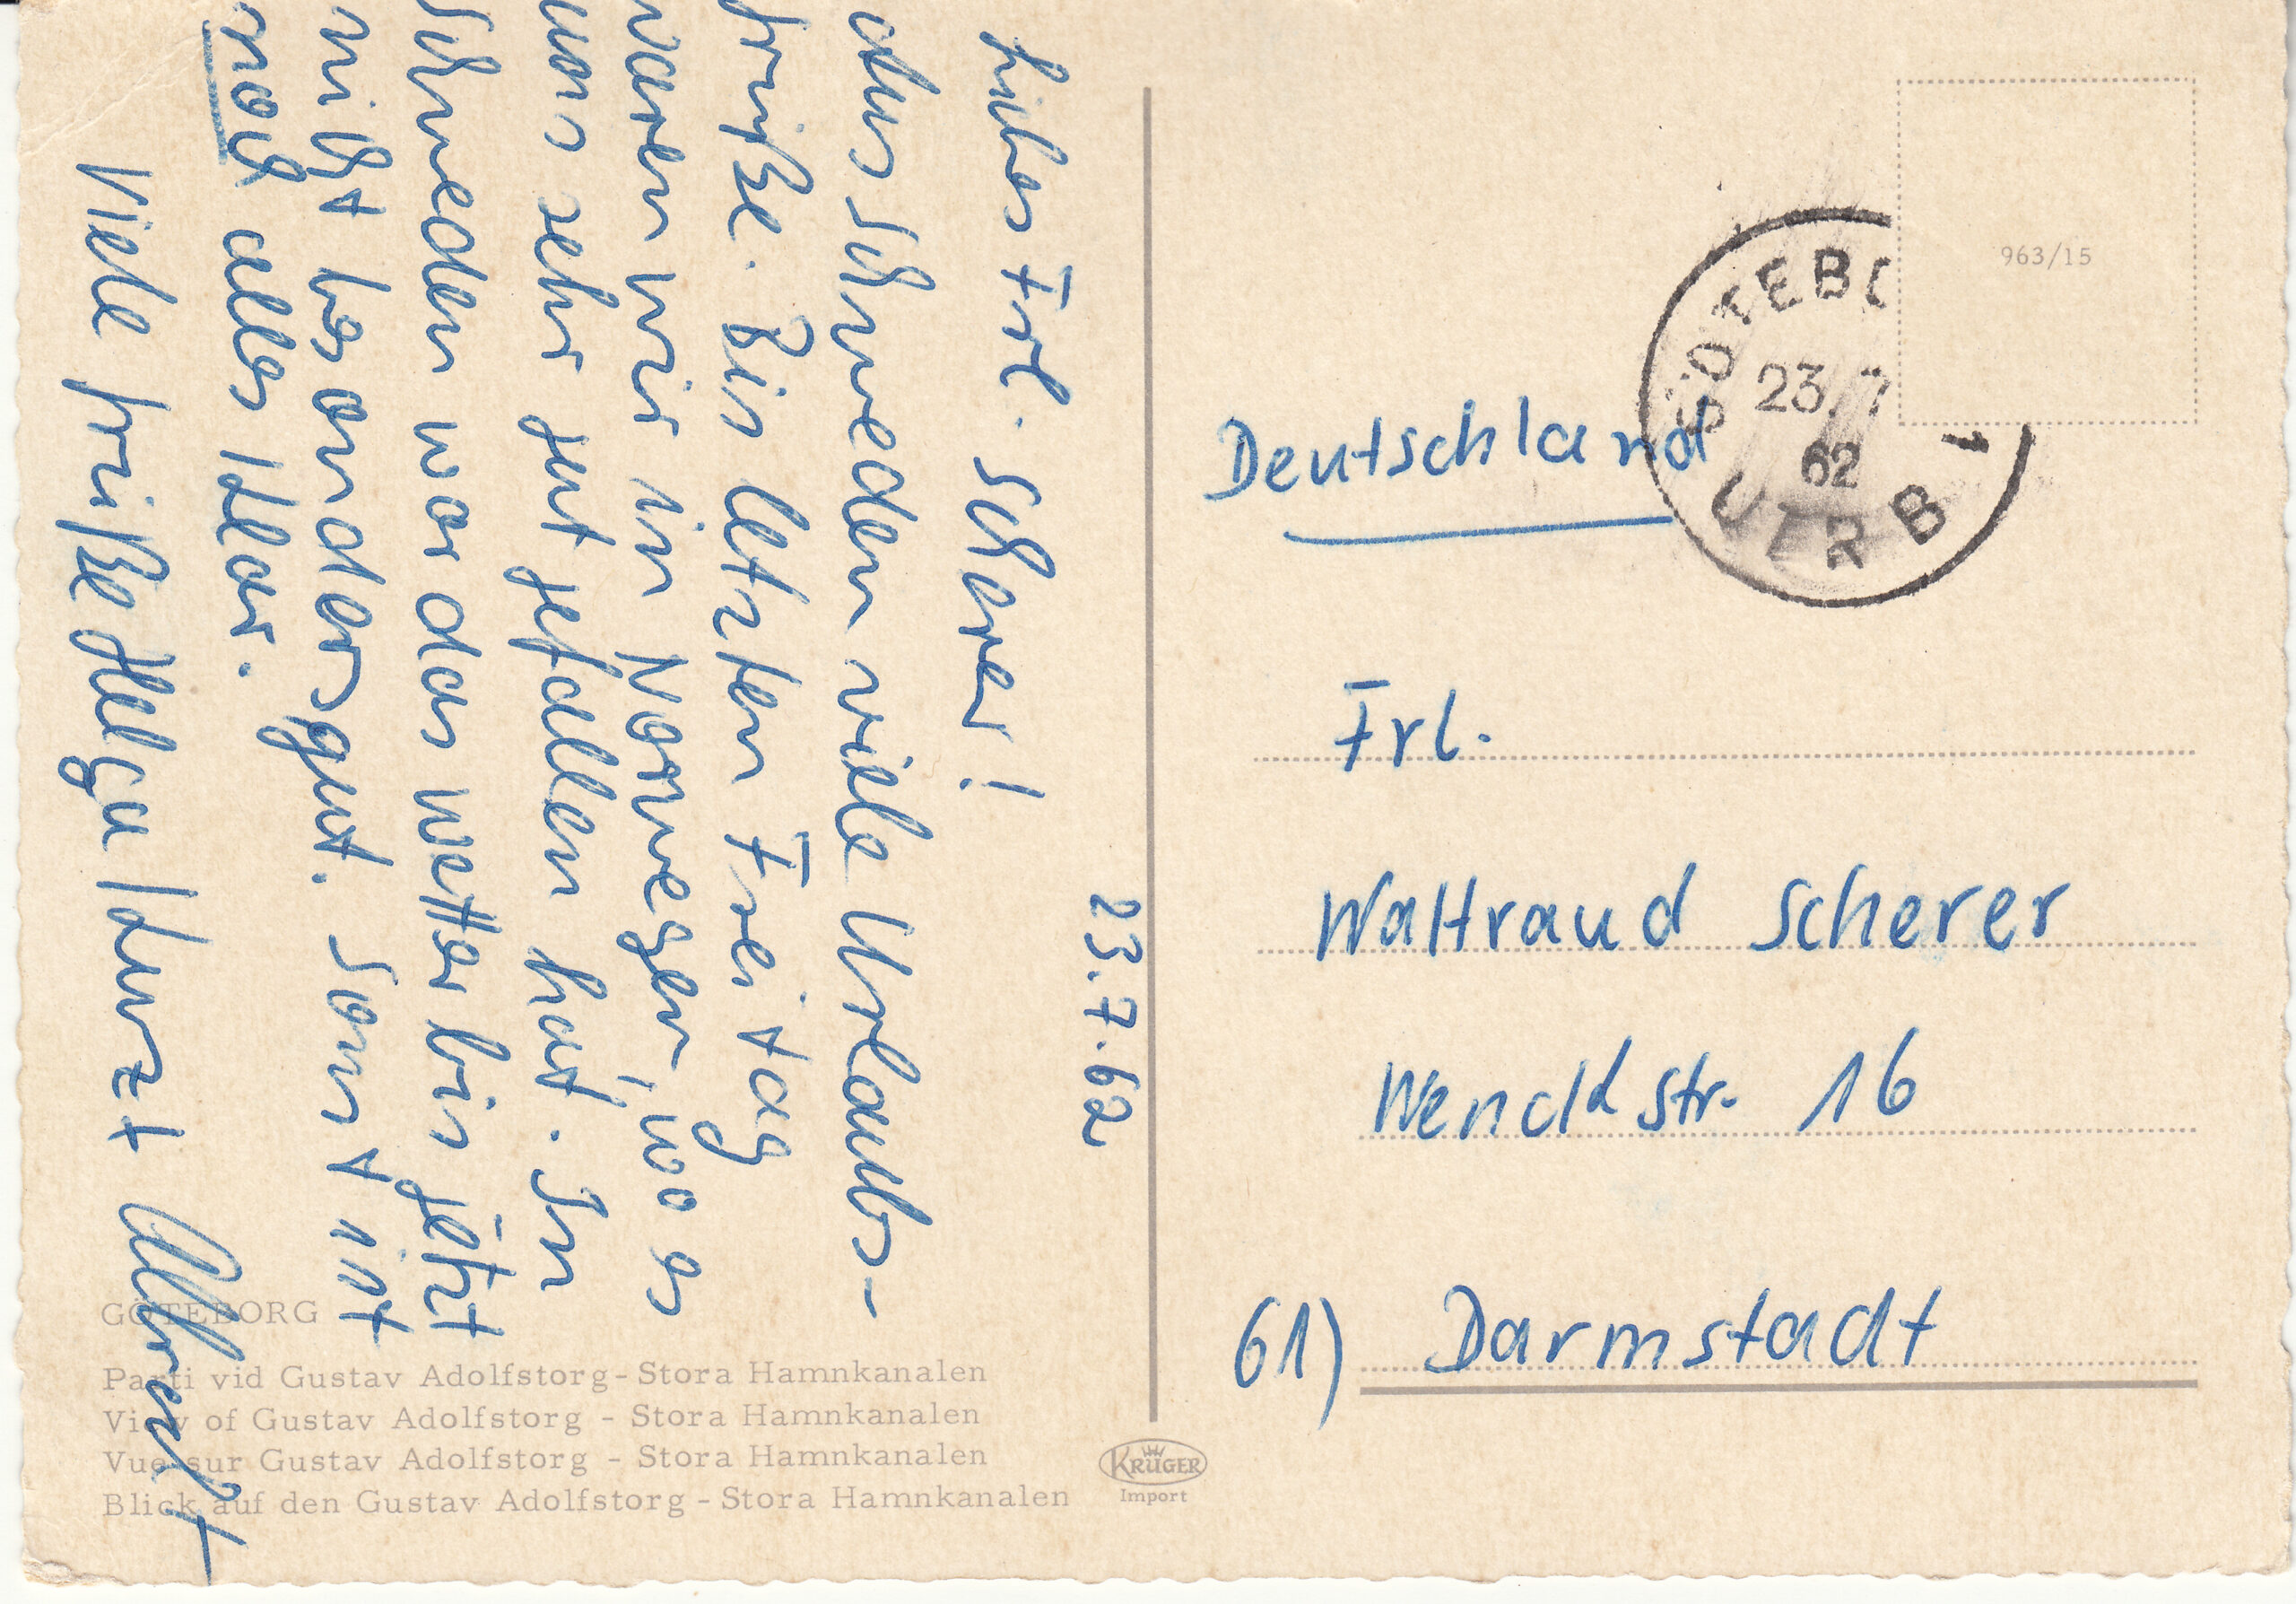 23.7.62
Liebes Frl. Scherer!
Aus Schweden viele Urlaubs-
grüße. Bis letzten Freitag
waren wir in Norwegen, wo es
uns sehr gut gefallen hat. In
Schweden war das Wetter bis jetzt
nicht besonders gut. Sonst ist
noch alles klar.
Viele Grüße Helga Kunz + Albrecht
GÖTEBORG
Parti vid Gustav Adolfstorg - Stora Hamnkanalen
View of Gustav Adolfstorg - Stora Hamnkanalen
Vue sur Gustav Adolfstorg - Stora Hamnkanalen
Blick auf den Gustav Adolfstorg - Stora Hamnkanalen
KRÜGER
Import
963/15
GÖTEBO
23. 7
62
1
Deutschland
Frl.
Waltraud Scherer
Wenckstr. 16
61) Darmstadt